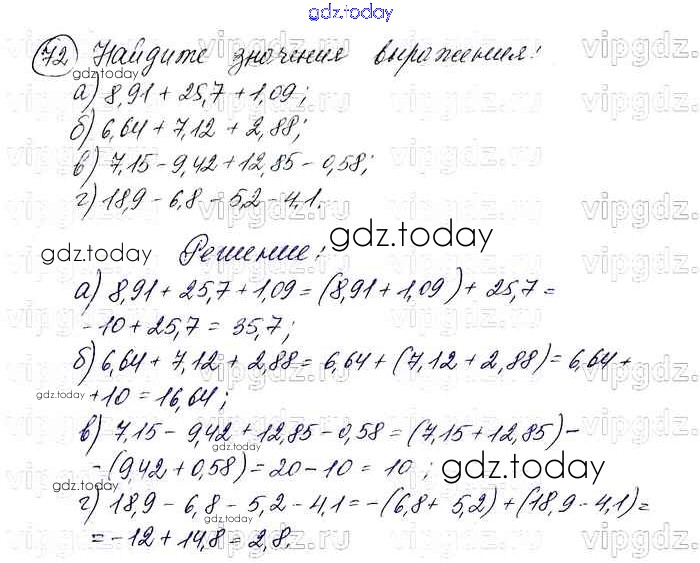 gdz.today
72 Найдите значения выражения:
а) 8,91 + 25,7 + 1,09;
б) 6,64 + 7,12 + 2,88;
в) 7,15 - 9,42 + 12,85 - 0,58;
г) 18,9 - 6,8 - 5,2 - 4,1.
Решение:
а) 8,91 + 25,7 + 1,09 = (8,91 + 1,09) + 25,7 =
- 10 + 25,7 = 35,7;
б) 6,64 + 7,12 + 2,88 = 6,64 + (7,12 + 2,88) = 6,64 +
+ 10 = 16,64;
в) 7,15 - 9,42 + 12,85 - 0,58 = (7,15 + 12,85) -
- (9,42 + 0,58) = 20 - 10 = 10;
г) 18,9 - 6,8 - 5,2 - 4,1 = -(6,8 + 5,2) + (18,9 - 4,1) =
= -12 + 14,8 = 2,8.
gdz.today
gdz.today
gdz.today
gdz.today
gdz.today
gdz.today
gdz.today
gdz.today
vipgdz.ru